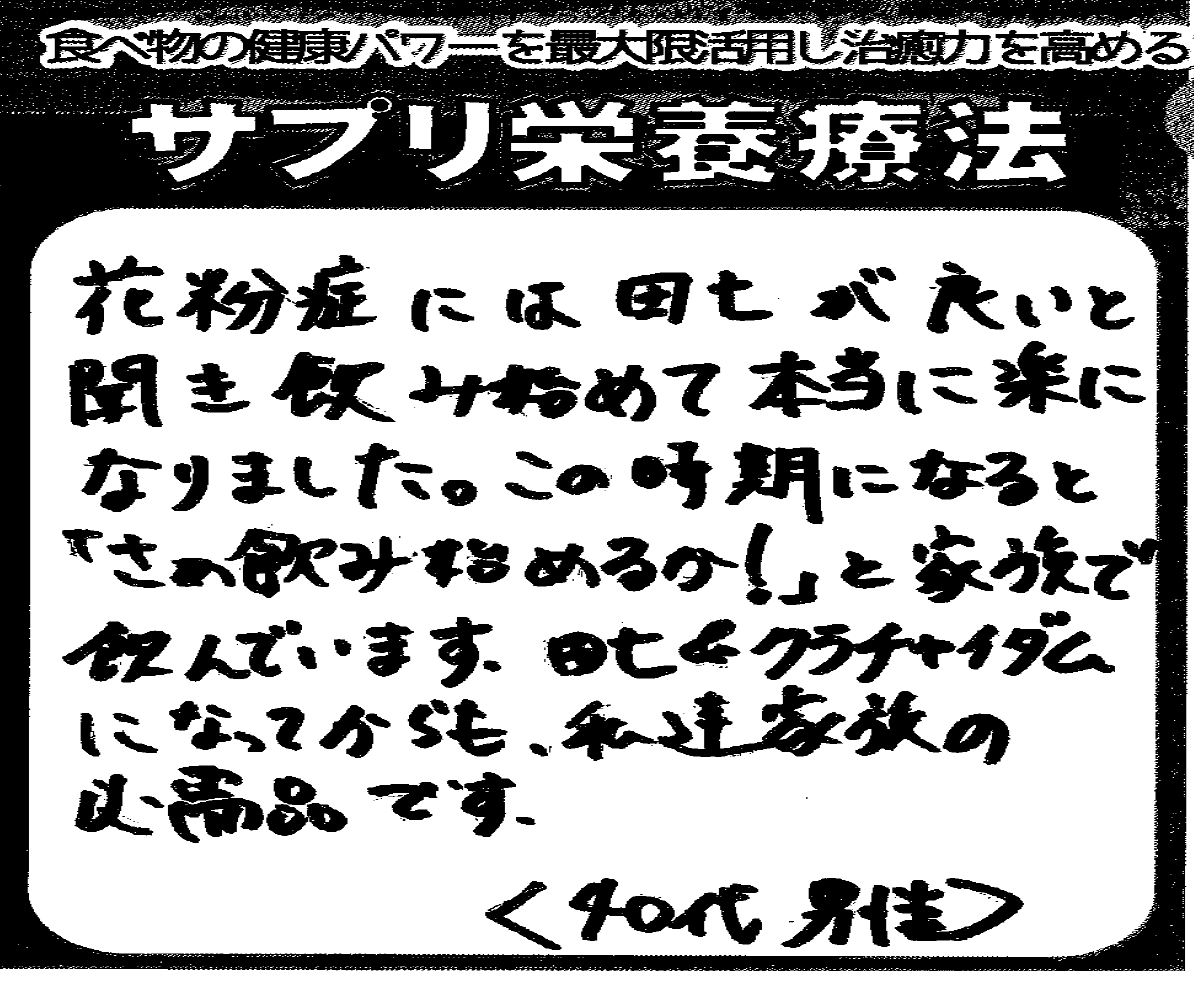 食べ物の健康パワーを最大限活用し治癒力を高める
サプリ栄養療法
花粉症には田七が良いと
聞き飲み始めて本当に楽に
なりました。この時期になると
「さぁ飲み始めるか!」と家族で
飲んでいます。田七&クラチャイダム
になってからも、私達家族の
必需品です。
<40代男性>